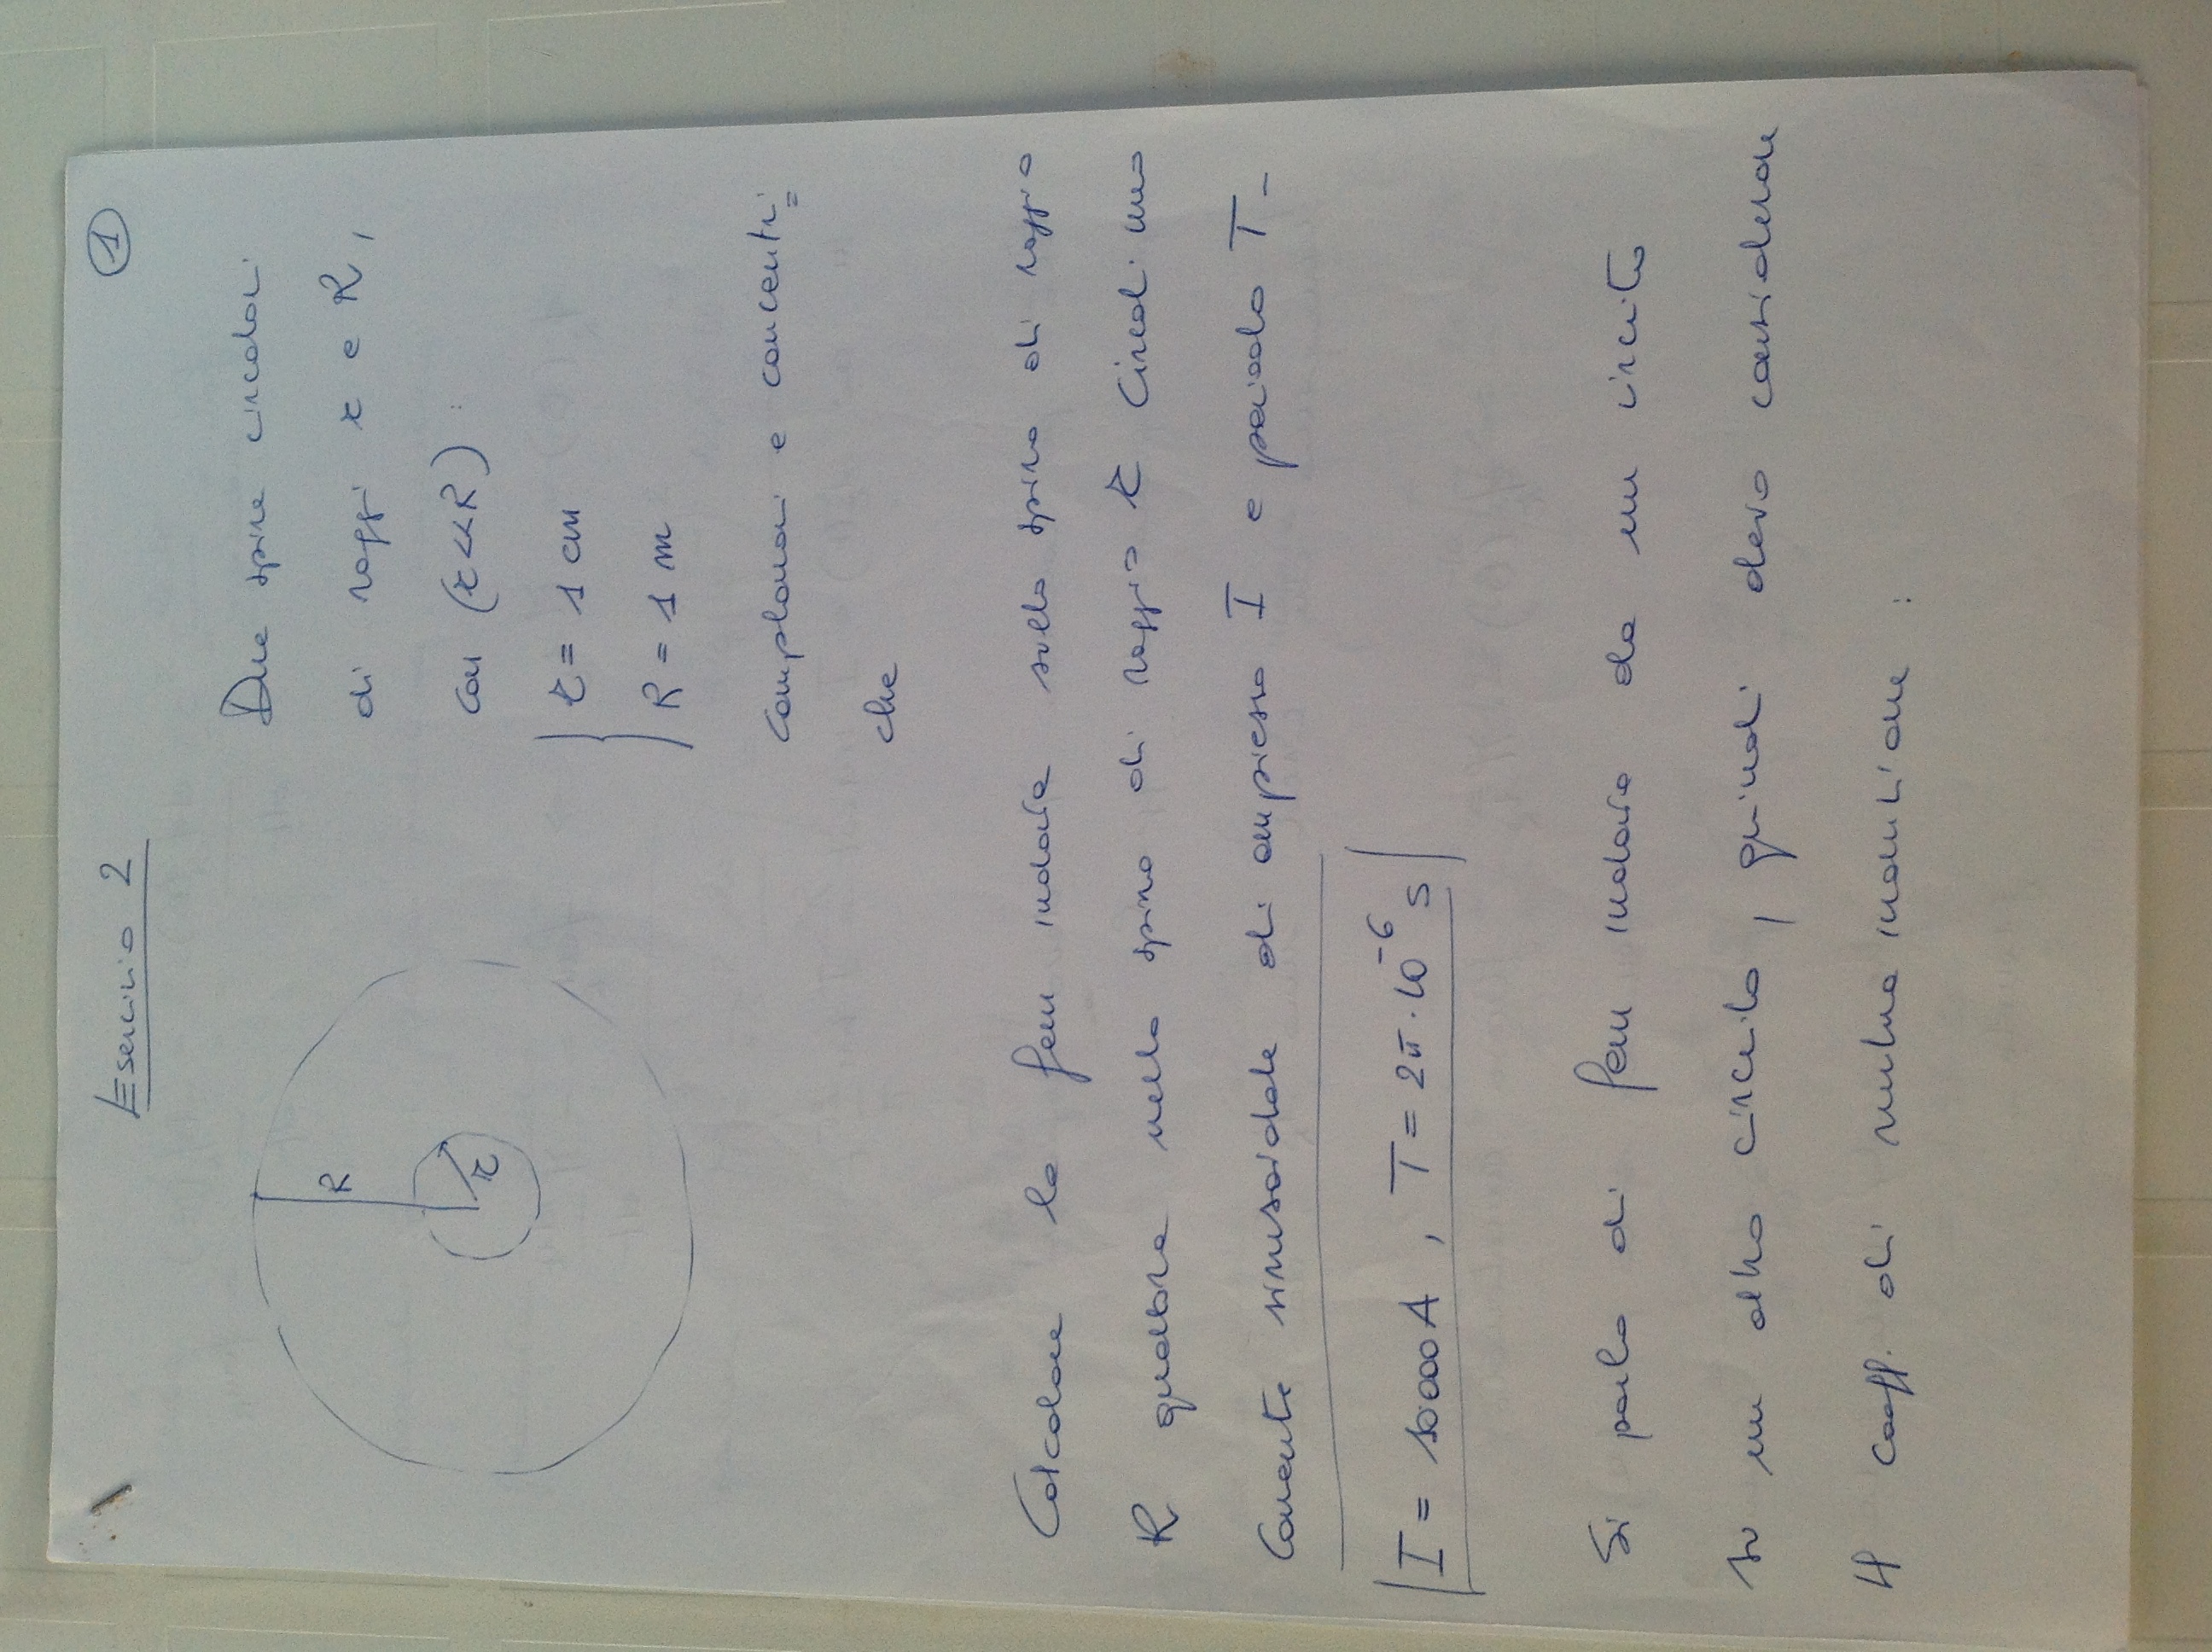 Esercizio 2
1
R
r
Due spire circolari
di raggi r e R,
con (r<<R) :
r = 1 cm
R = 1 m
complanari e concentri=
che
Calcolare la fem indotta sulla spira di raggio
R qualora nella spira di raggio r circoli una
corrente sinusoidale di ampiezza I e periodo T-
I = 10000 A , T = 2π·10⁻⁶ s
Si parla di fem indotta da un circuito
su un altro circuito, quindi devo considerare
il coeff. di mutua induzione :